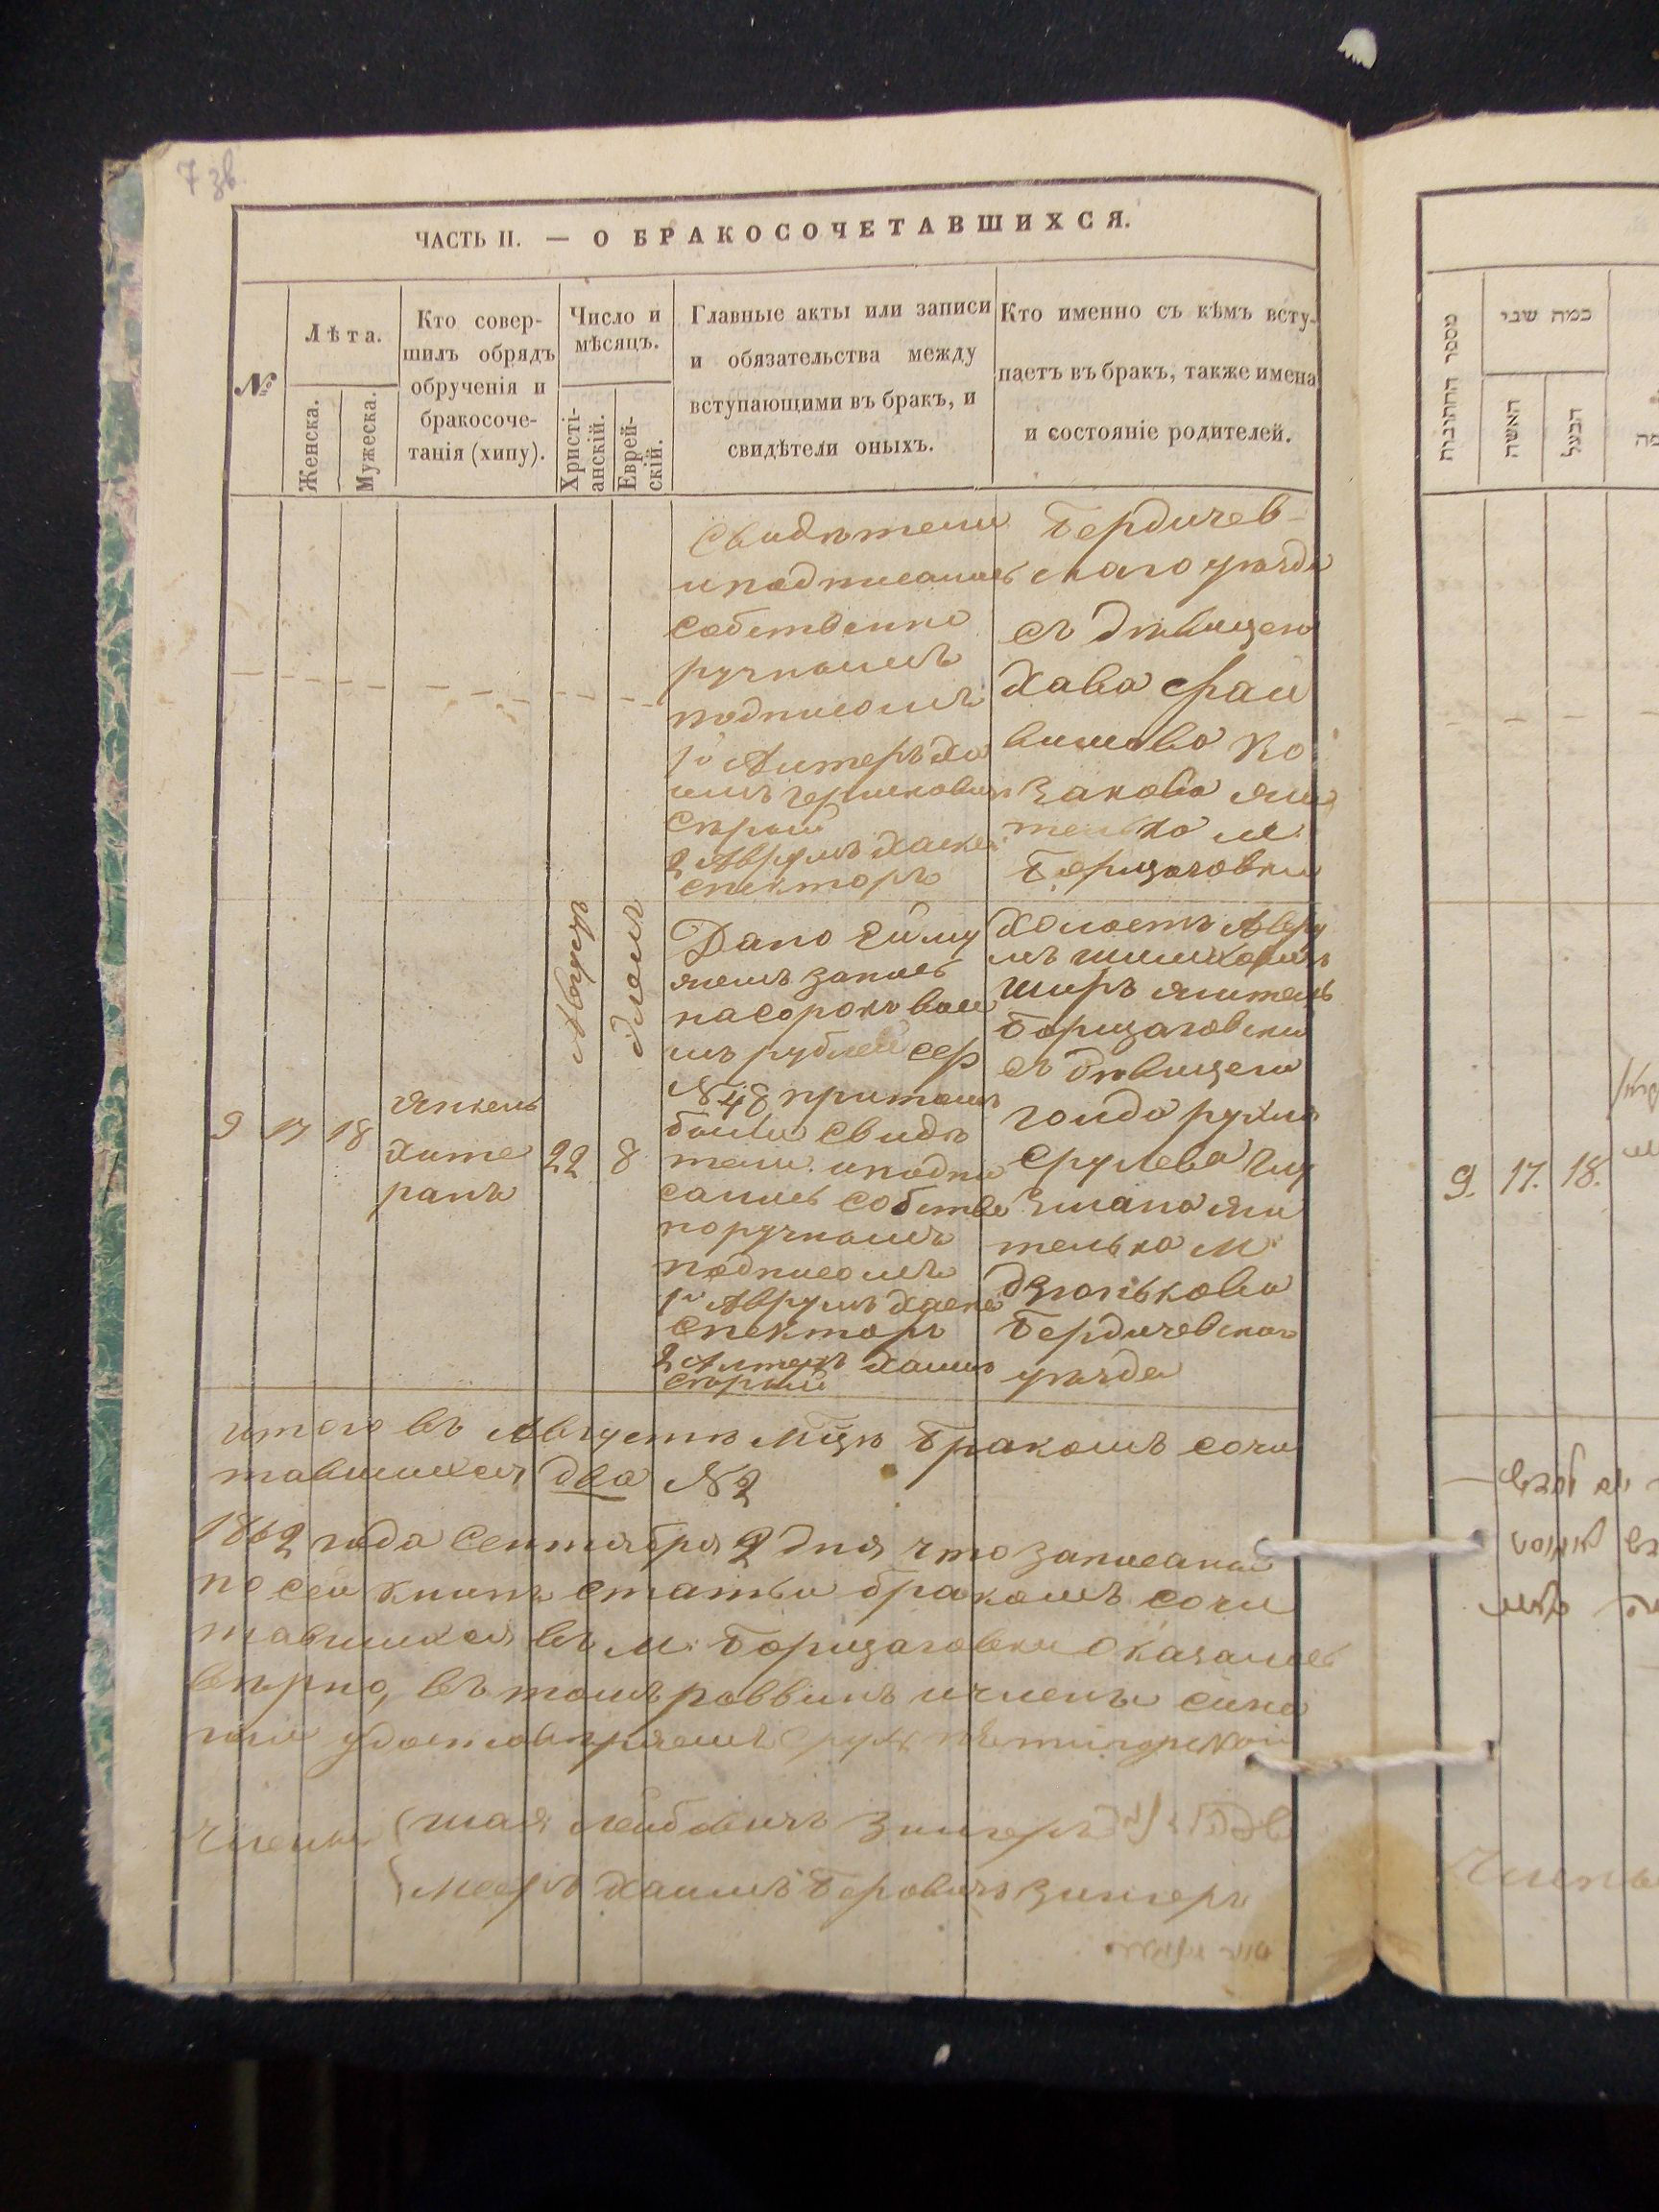 7 зв.
ЧАСТЬ II. — О БРАКОСОЧЕТАВШИХСЯ.
№
Лѣта.
Женска.
Мужеска.
Кто совер-
шилъ обрядъ
обрученія и
бракосоче-
танія (хипу).
Число и
мѣсяцъ.
Христі-
анскій.
Еврей-
скій.
Главные акты или записи
и обязательства между
вступающими въ бракъ, и
свидѣтели оныхъ.
Кто именно съ кѣмъ всту-
паетъ въ бракъ, также имена
и состояніе родителей.
Свидѣтели
и подписались
собственно
ручнымъ
подписомъ
1й Алтеръ Ха
имъ Гершковичъ
Сѣрый
2 Аврумъ Хаске
Спекторъ
Бердичев-
скаго уѣзда
съ дѣвицею
Хава Фай
вишова Ко
закова жи
телька м.
Борщаговки
9
17
18
Янкель
Хите
ранъ
Августъ
22
Элюлъ
8
Дано ему
женъ запись
на сорокъ восе
мъ рублей сер
№ 48 притомъ
были свидѣ
тели и подпи
сались собстве
норучнымъ
подписомъ
1й Аврумъ Хаске
Спекторъ
2 Алтеръ Хаимъ
Сѣрый
Холостъ Авру
мъ
Ширъ житель
Борщаговки
съ дѣвицею
Голда Рухля
Срулева Гу
змана жи
телька м.
Дзюнькова
Бердичевскаго
уѣзда
итого въ Августѣ мцѣ бракомъ сочи
тавшихся два № 2
1862 года Сентября 2 дня что записаныи
по сей книгѣ статьи бракомъ сочи
тавшихся въ м. Борщаговки оказались
вѣрно, въ томъ раввинъ и члены сина
гоги удостовѣряемъ Сруль Пятигорской
Члены
Шая Лейбовичъ Зингеръ
Мееръ Хаимъ Беровичъ Зингеръ
מספר החתונות
כמה שני
האשה
הבעל
9. 17. 18.
Члены